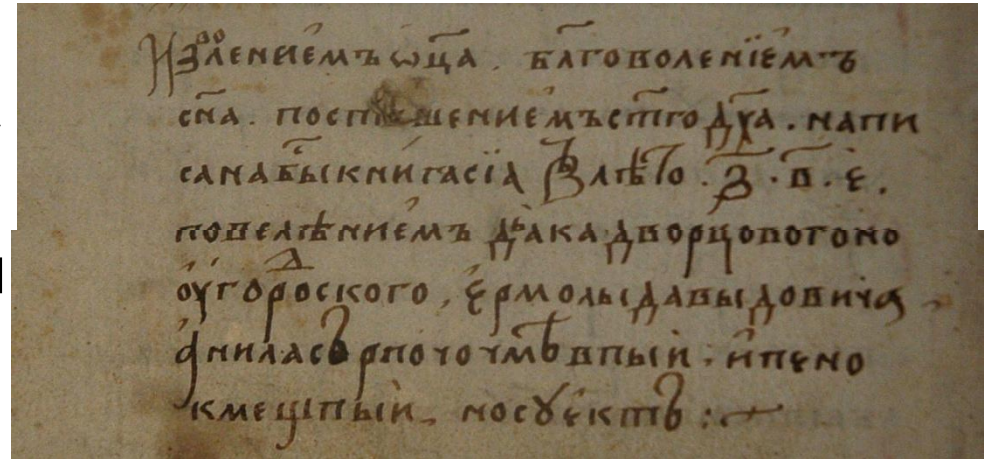 Изволениемъ ѡц҃а . бл҃говоленїемъ
сн҃а . поспѣшениемъ ст҃го дх҃а . напи
сана бы книга сїа в лѣто . ҂з . в҃ . е .
повелѣниемъ дьяка дворцового но
оугородского , ермолы давыдовича
днила съ рпочо чмъ впыи . и пено
кмещпыи носуектъ :